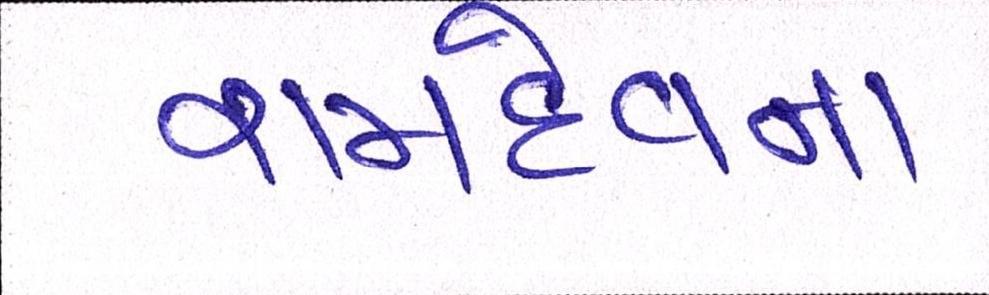 વામદેવના